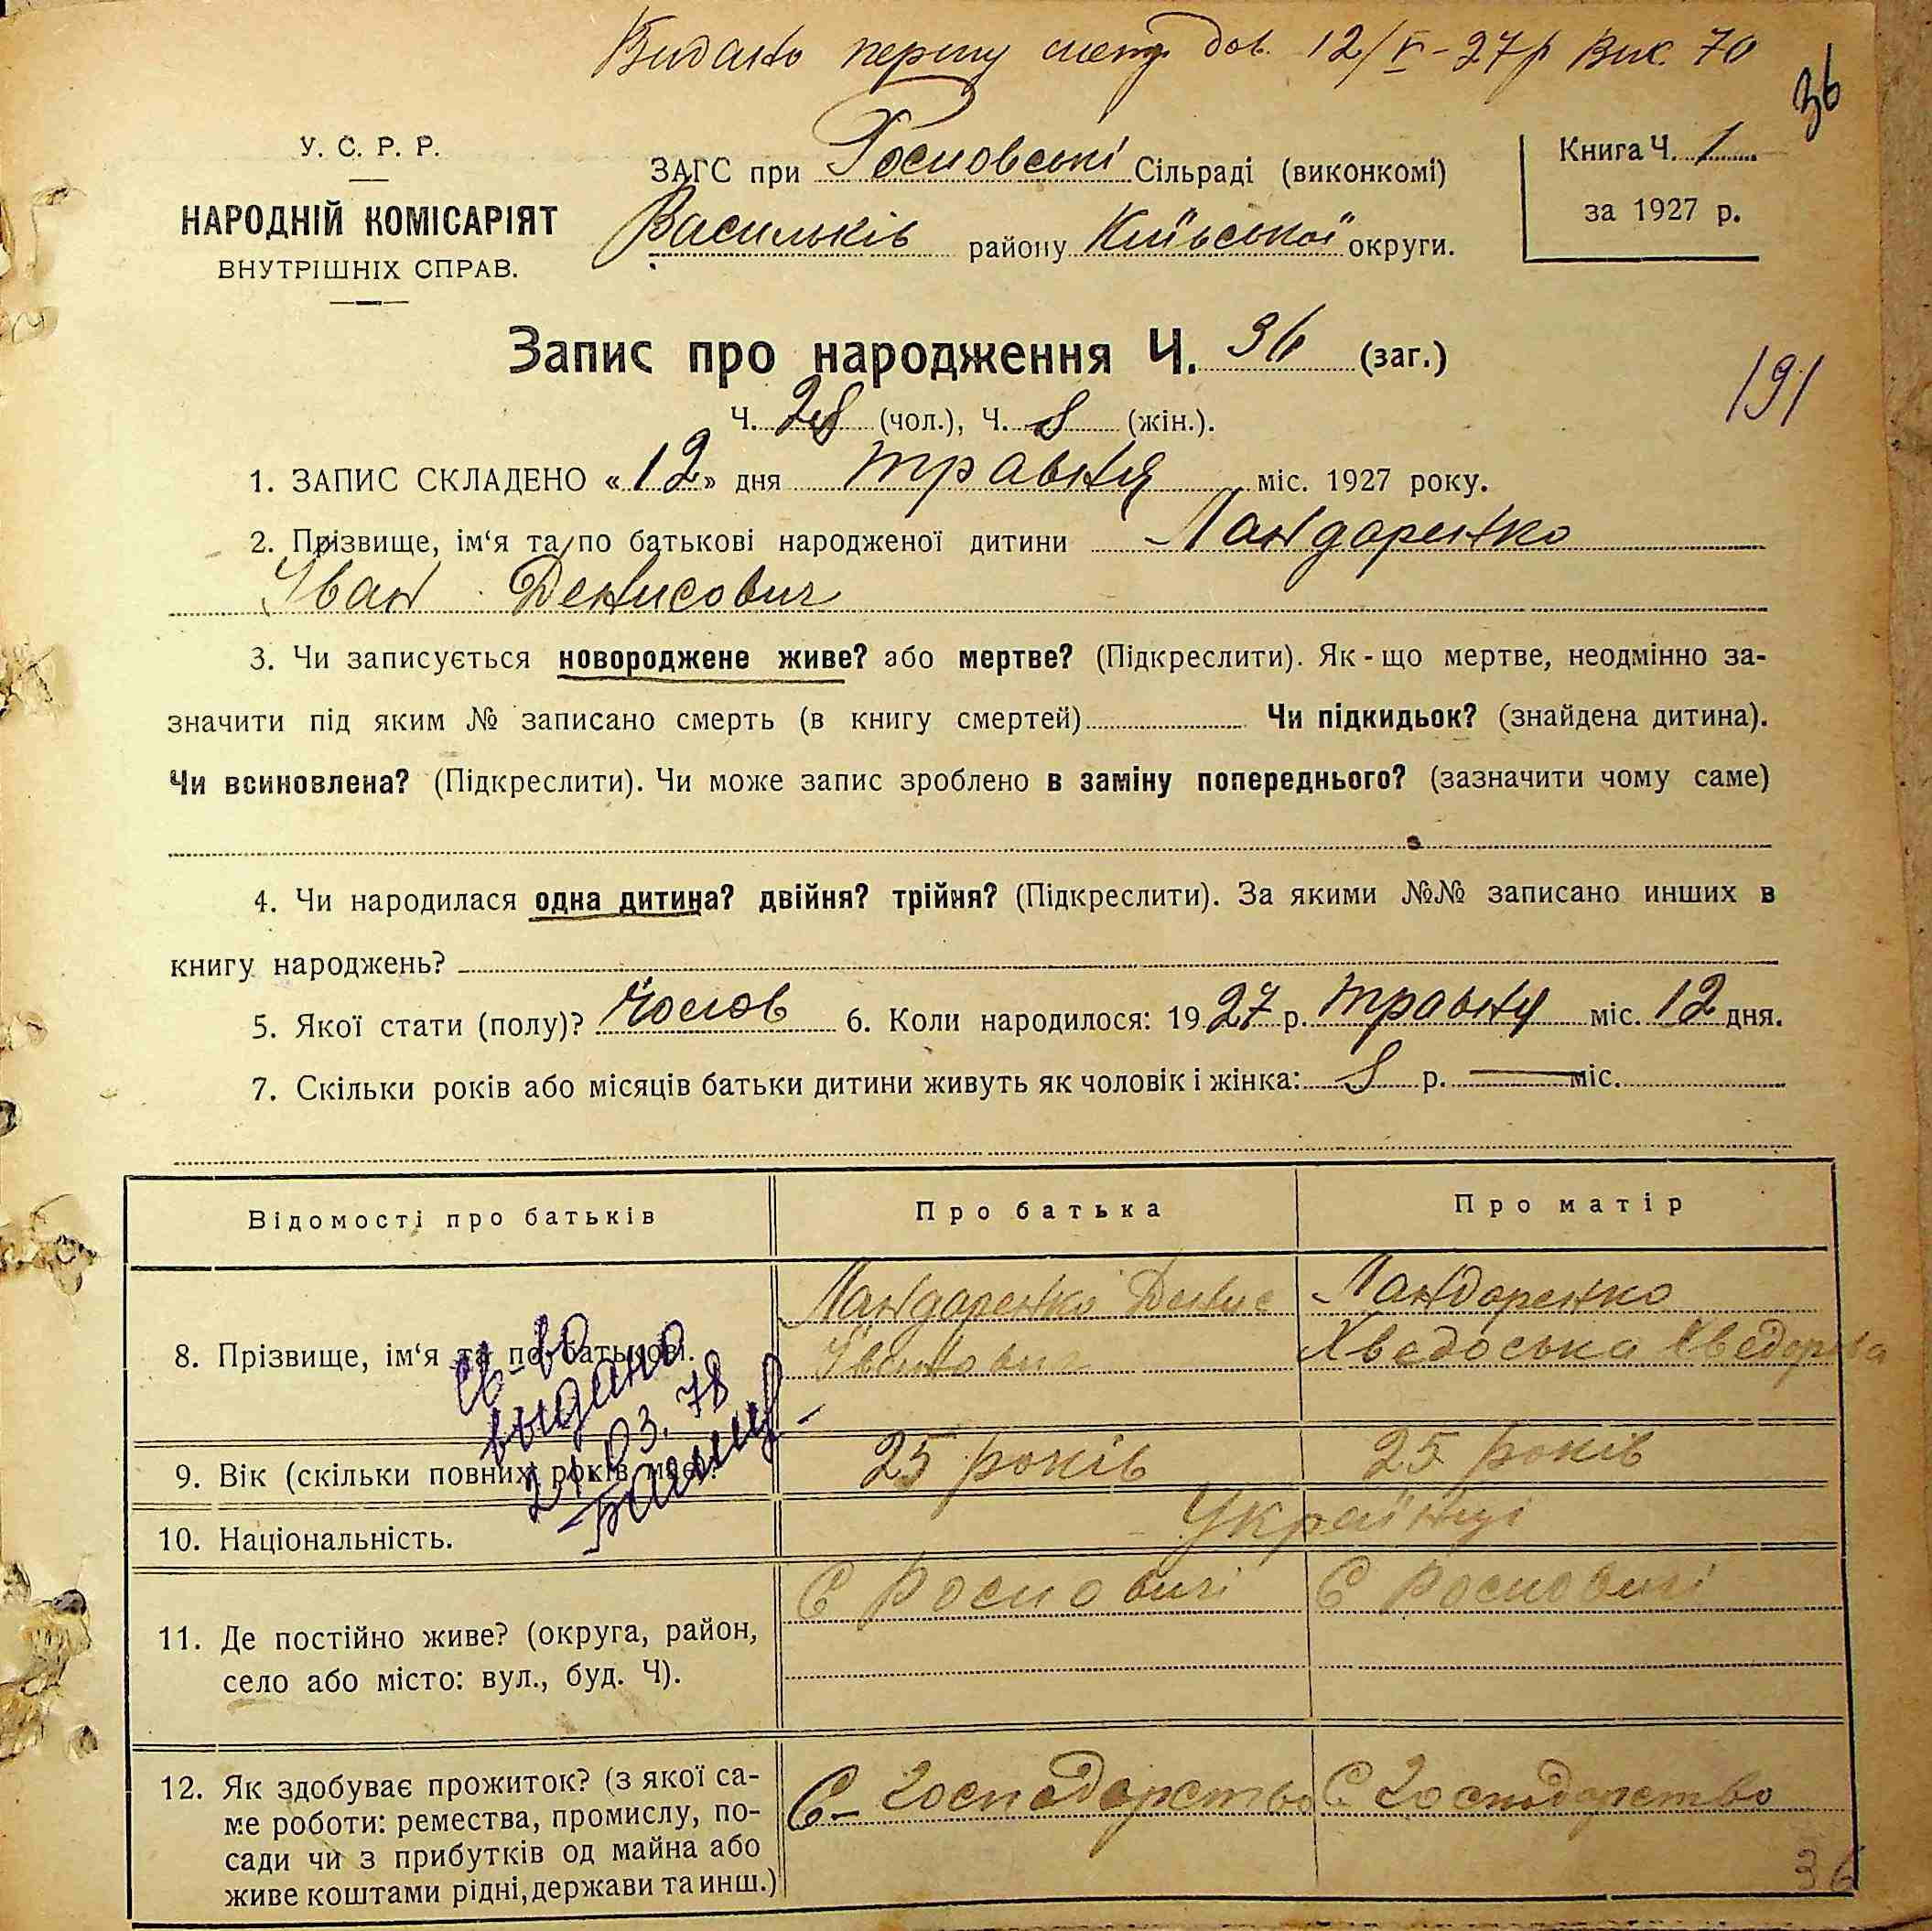 Видано першу дов. 12/V-27р Вик. 70
36
У. С. Р. Р.
НАРОДНІЙ КОМІСАРІЯТ
ВНУТРІШНІХ СПРАВ.
ЗАГС при Росновські Сільраді (виконкомі)
Васильків району Київської округи.
Книга Ч. 1
за 1927 р.
Запис про народження Ч. 36 (заг.)
191
Ч. 28 (чол.), Ч. 8 (жін.).
1. ЗАПИС СКЛАДЕНО «12» дня травня міс. 1927 року.
2. Прізвище, ім‘я та по батькові народженої дитини Ландаренко
Іван Денисович
3. Чи записується новороджене живе? або мертве? (Підкреслити). Як-що мертве, неодмінно за-
значити під яким № записано смерть (в книгу смертей) Чи підкидьок? (знайдена дитина).
Чи всиновлена? (Підкреслити). Чи може запис зроблено в заміну попереднього? (зазначити чому саме)
4. Чи народилася одна дитина? двійня? трійня? (Підкреслити). За якими №№ записано инших в
книгу народжень?
5. Якої стати (полу)? Чолов 6. Коли народилося: 1927 р. травня міс. 12 дня.
7. Скільки років або місяців батьки дитини живуть як чоловік і жінка: 8 р. — міс.
Відомості про батьків Про батька Про матір
8. Прізвище, ім‘я та по батькові.
Ландаренко Денис
Іванович
Ландаренко
Хведоська Хведорова
св-во
выдано
21.03.78
9. Вік (скільки повних років має). 25 років 25 років
10. Національність. Українці
11. Де постійно живе? (округа, район,
село або місто: вул., буд. Ч).
С Росновичі С Росновичі
12. Як здобуває прожиток? (з якої са-
ме роботи: ремества, промислу, по-
сади чи з прибутків од майна або
живе коштами рідні, держави та инш.)
С-господарство С господарство
36